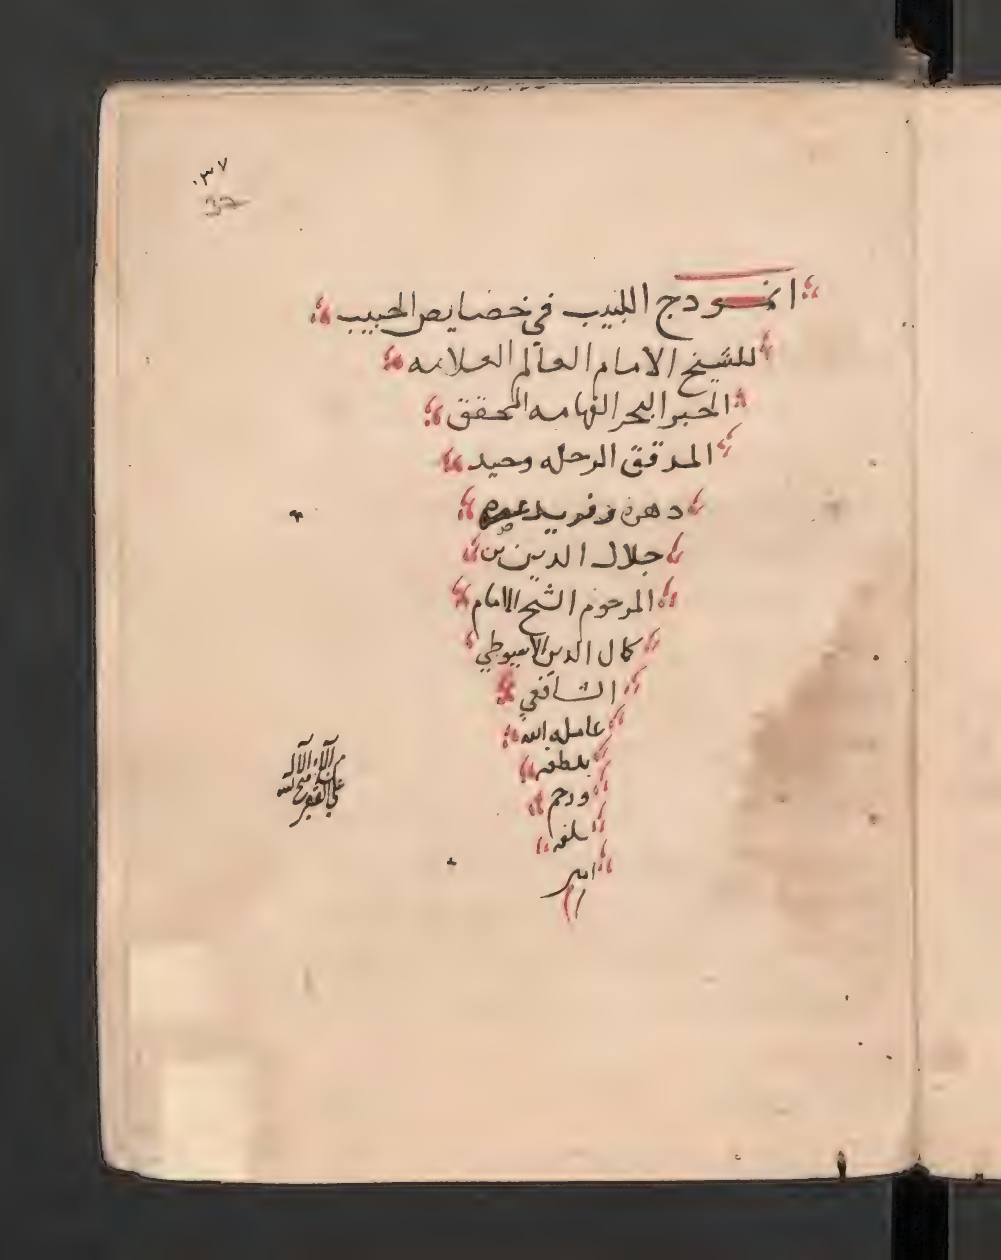 ٠٣٧
37
انمودج اللبيب في خصايص الحبيب
للشيخ الامام العالم العلامه
الحبر البحر الفهامه المحقق
المدقق الرحله وحيد
دهره وفريد عصره
جلال الدين بن
المرحوم الشيخ الامام
كمال الدين الاسيوطي
الشافعي
عامله الله
بلطفه
ورحم
سلفه
امين
من آلاء الاله
على الفقير